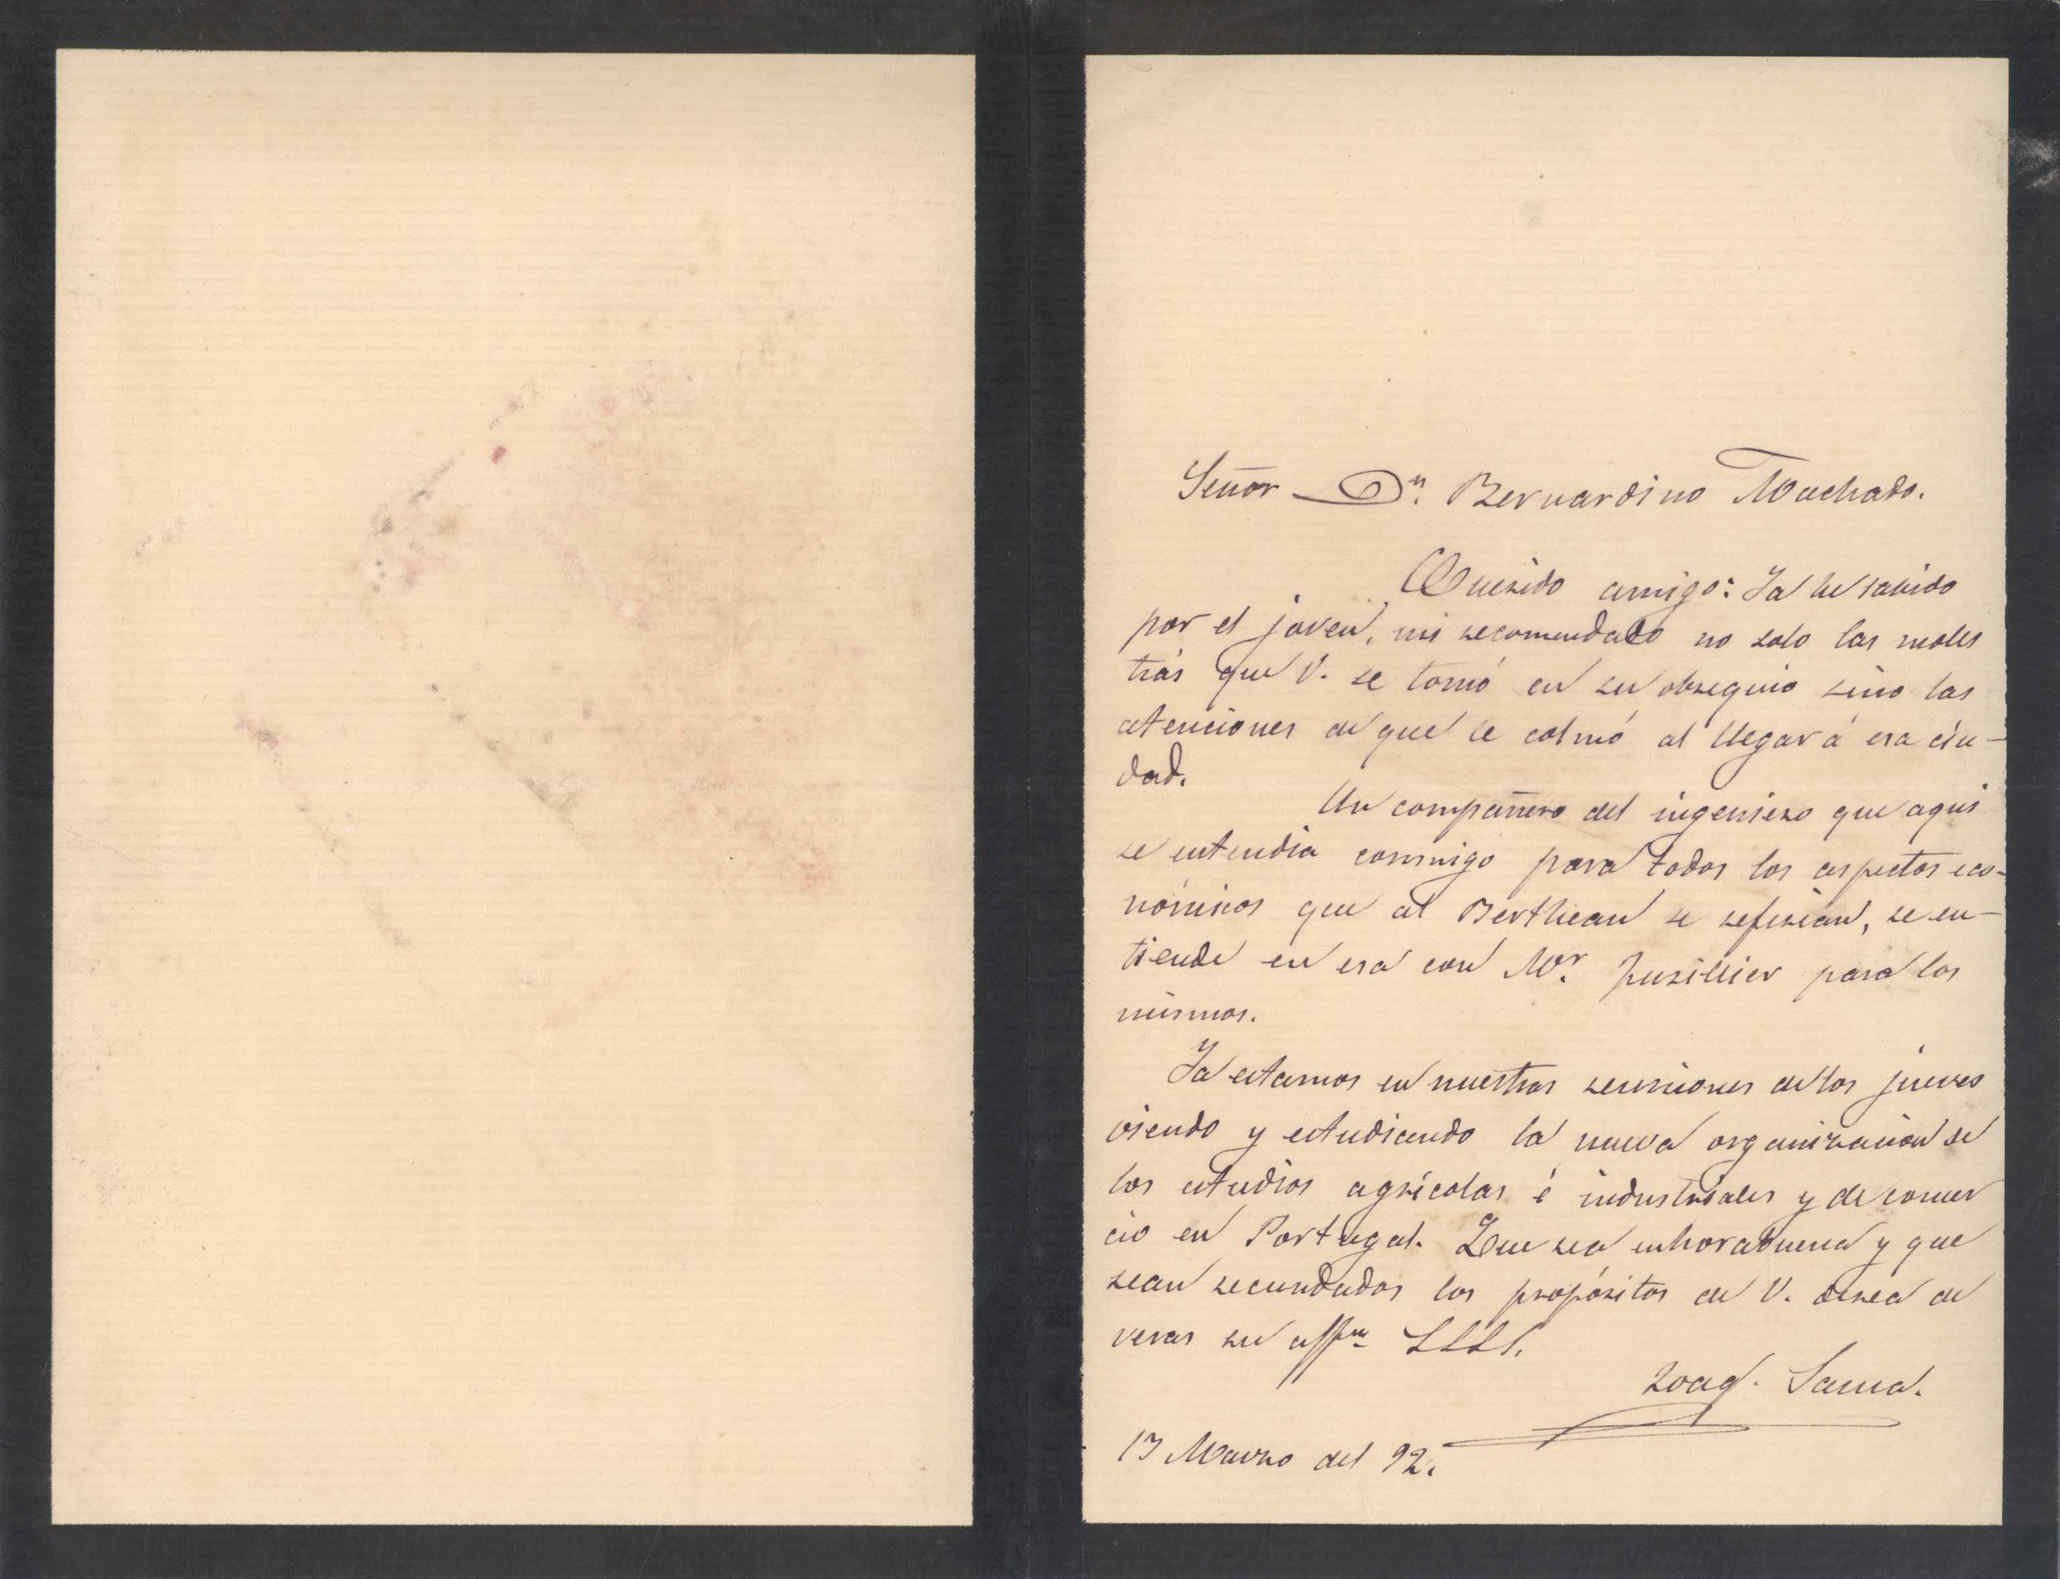 Señor Dn. Bernardino Machado.
Querido amigo: Ya he sabido
por el joven, mi recomendado no solo las moles
tias que V. se tomó en su obsequio sino las
atenciones de que le colmó al llegar á esa ciu-
dad.
Un compañero del ingeniero que aqui
se entendia conmigo para todos los aspectos eco-
nómicos que al Bertheau se referian, se en-
tiende en esa con Mr. para los
mismos.
Ya estamos en nuestras reuniones de los jueves
viendo y estudiando la nueva organizacion de
los estudios agrícolas é industriales y de comer
cio en Portugal. Que sea enhorabuena y que
sean secundados los propósitos de V. desea de
veras su affmo
Joaq. Sama.
17 Marzo del 92.